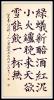 綠蟻新醅酒紅泥
小火爐晚來天欲
雪能飲一杯無